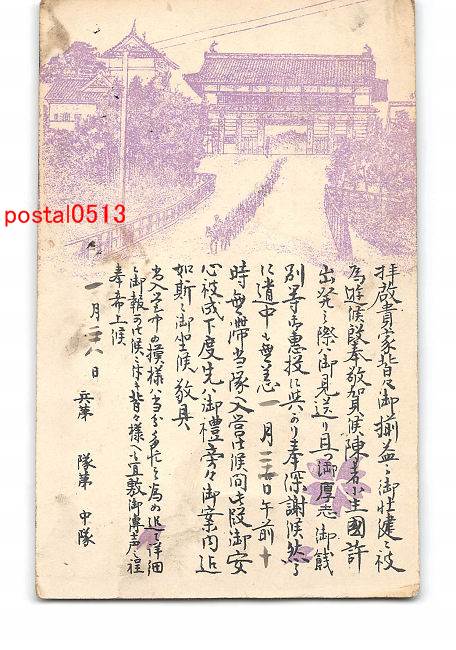 postal0513
拝啓貴家皆々御揃益々御壮健ニ被
為遊候段奉敬賀候陳者小生國許
出発之際ハ御見送り且つ御厚志御餞
別等御惠投ニ與かり奉深謝候然る
に道中も無恙一月二十日午前十
時無滞当隊入営仕候間此段御安
心被成下度先ハ御禮旁々御案内迄
如斯ニ御坐候敬具
当入営中の模様ハ当分多忙之為め追て詳細
御報可仕候 皆々様ニ宜敷御傳声之程
奉希上候
一月二十八日
兵第 隊第 中隊